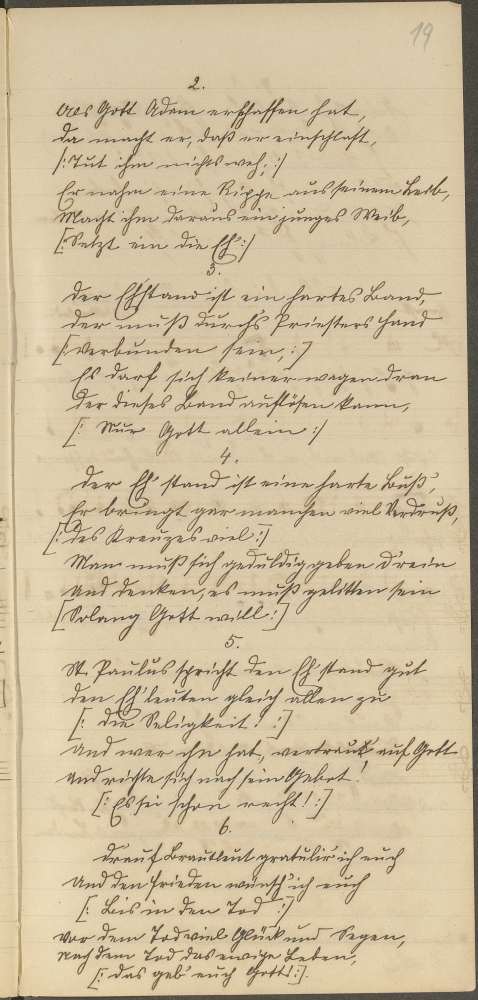 19
2.
Als Gott Adam erschaffen hat,
da macht er, daß er einschlaft,
/: Tut ihm nichts weh; :/
Er nahm eine Rippe aus seinem Leib,
Macht ihm daraus ein junges Weib,
[: Setzt ein die Eh' :/
3.
Der Eh'stand ist ein hartes Band,
der muß durch's Priesters Hand
[: verbunden sein, :]
Es darf sich keiner wagen dran
der dieses Band auflösen kann,
[: Nur Gott allein :/
4.
Der Eh'stand ist eine harte Buß',
Er bringt gar manchen viel Verdruß,
[: des Kreuzes viel :]
Man muß sich geduldig geben d'rein
und denken, es muß gelitten sein
[Solang Gott will :]
5.
St. Paulus spricht den Eh'stand gut
den Eh'leuten gleich allen zu
[: die Seligkeit! :]
und wer ihn hat, vertraut auf Gott
und richte sich nach sein Gebot!
[: Es sei schon recht! :]
6.
Drauf Brautleut gratulir' ich euch
und den Frieden wünsch' ich euch
[: bis in den Tod :]
vor dem Tod viel Glück und Segen,
nach dem Tod das ewige Leben,
[: das geb' euch Gott! :].